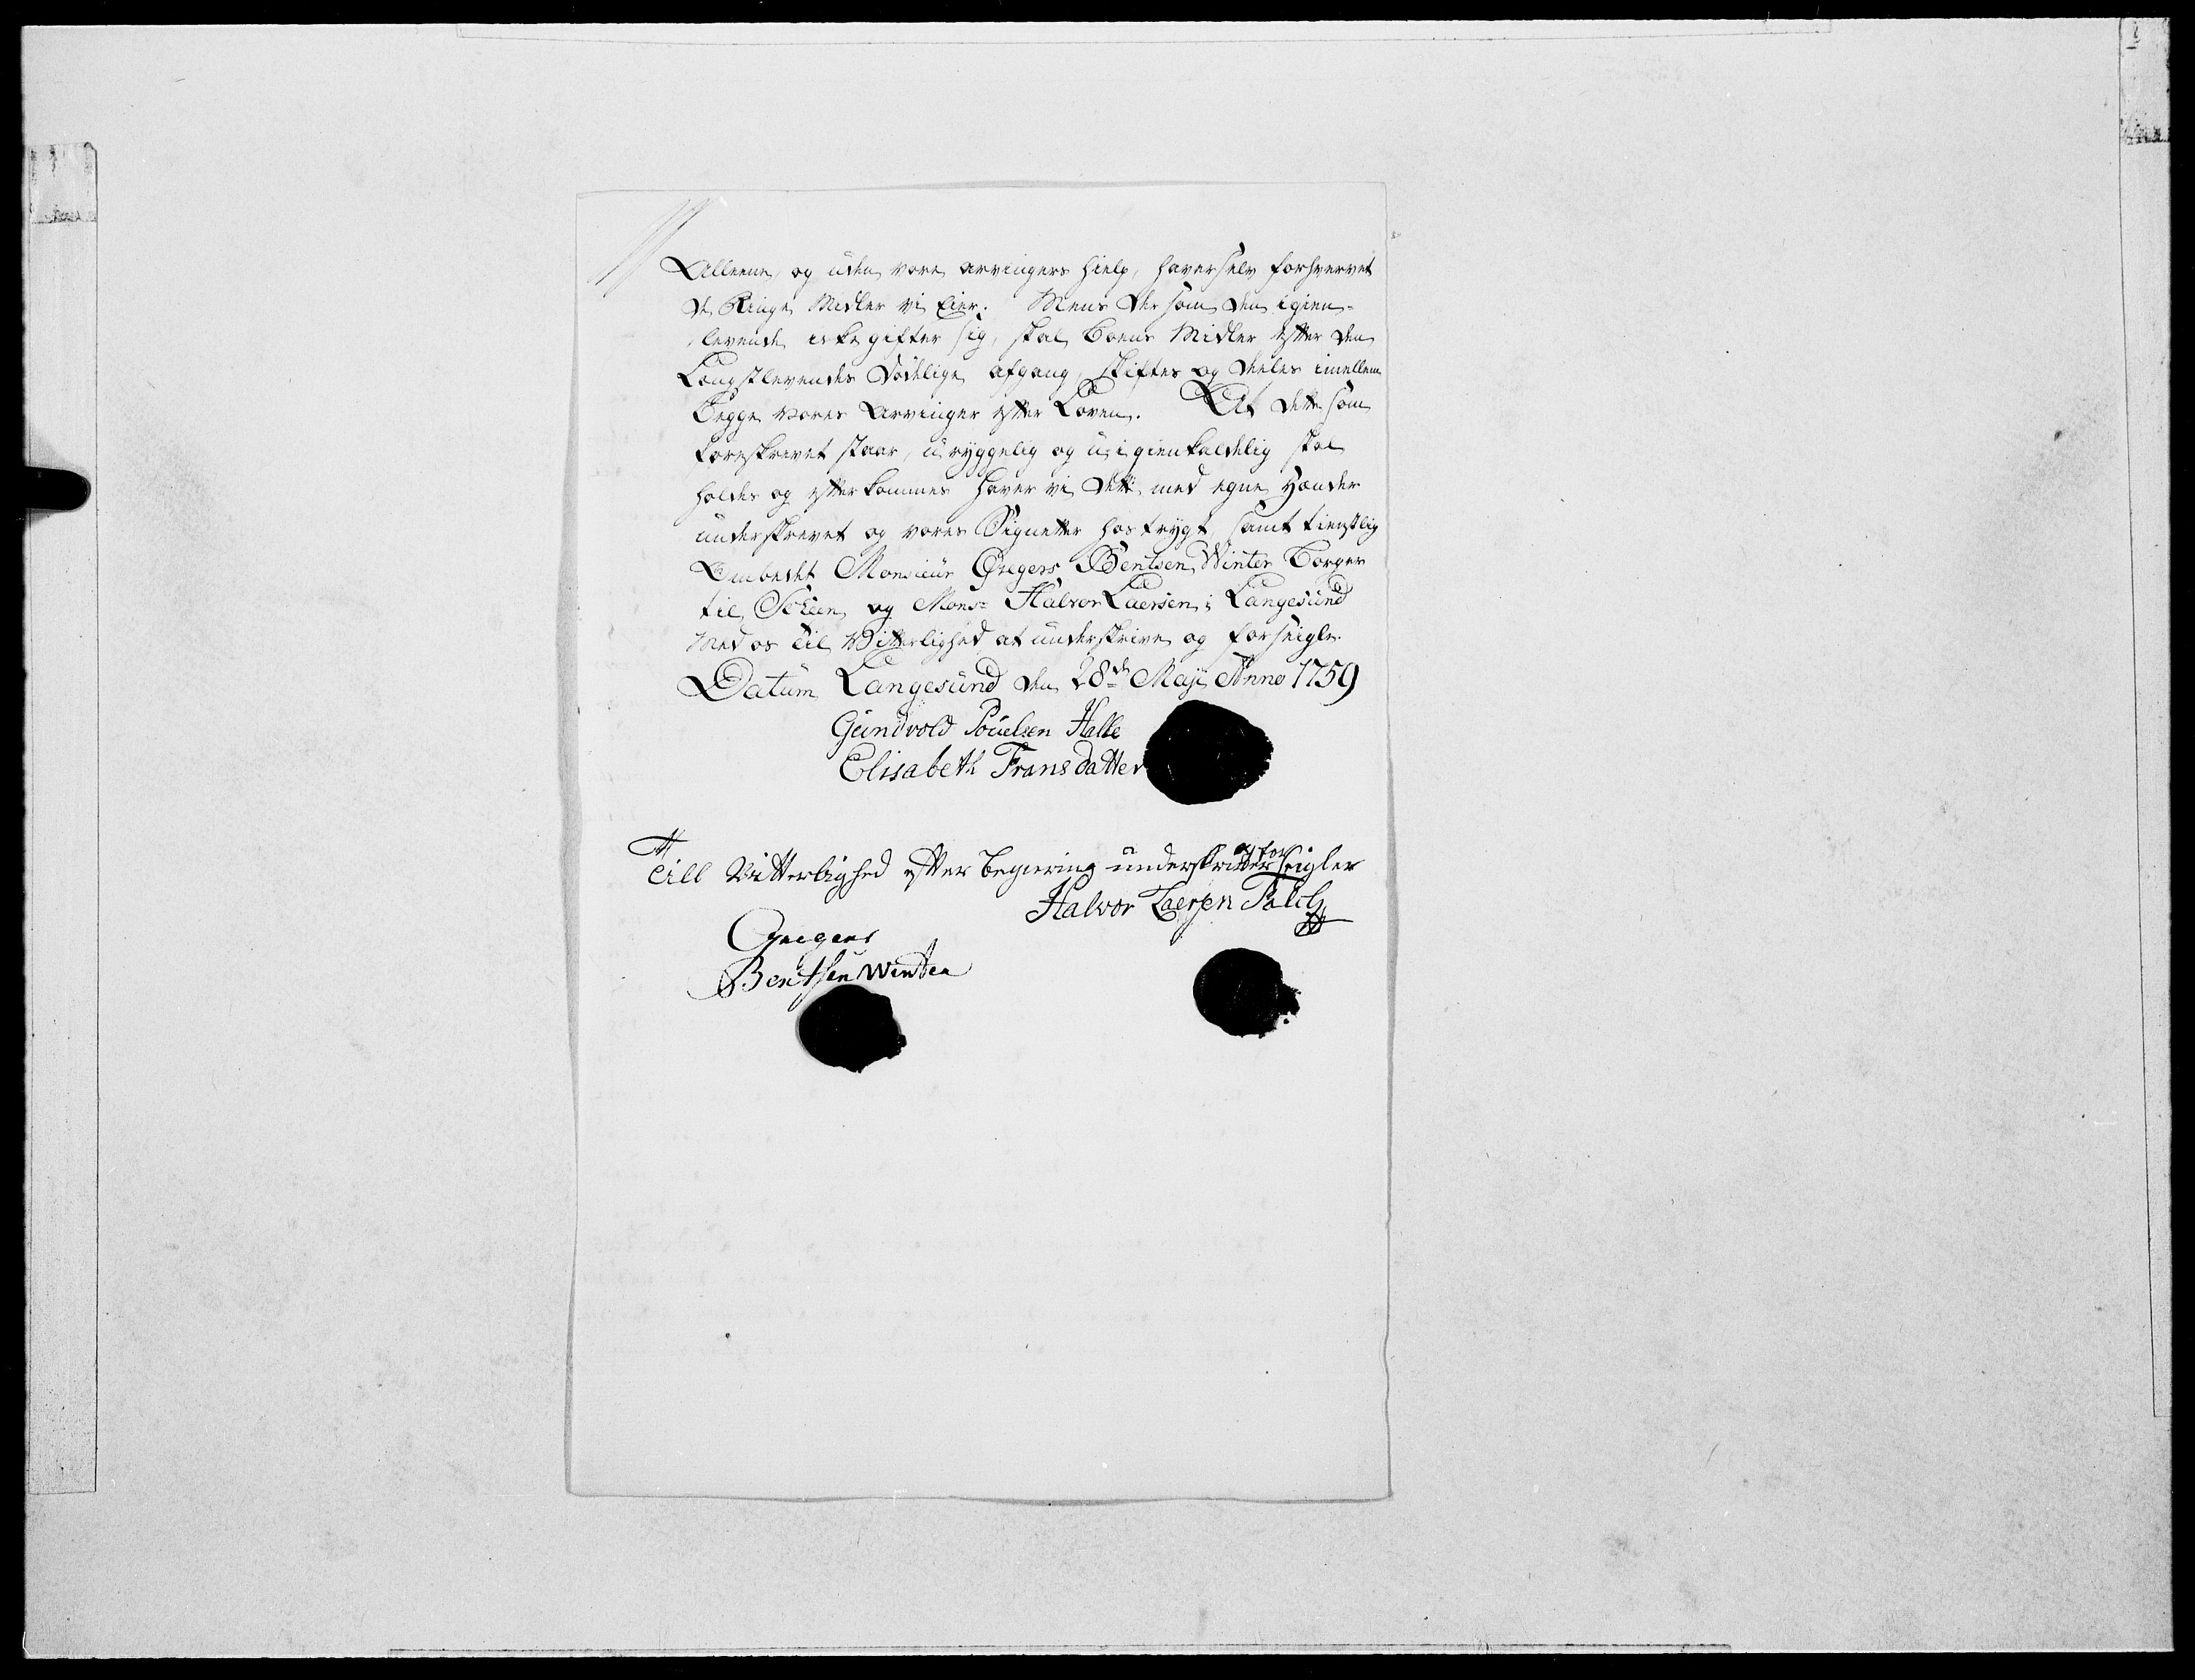 Alleene, og uden vore arvingers hielp, haver selv forhvervet
de Ringe Midler vi Eier. Mens der som den igien-
levende icke gifter sig, skal boens Midler efter den
Længstlevendes Dødelige afgang, skiftes og deeles imellem
Begge vores Arvinger efter Loven. At dette som
foreskrevet staar, u ryggelig og u igienkaldelig skal
holdes og efterkommes haver vi dette med egne Hænder
underskrevet og vores Signetter hos trygt samt tienstlig
Ombedet Monsieur Gregers Bentsen Winter Borger
til Scheen og Mons: Halvor Laersen i Langesund
Med os til Vitterlighed at underskrive og forseigle.
Datum Langesund den 28de Maji Anno 1759
Gundvold Pouelsen Halle
Elisabeth Fransdatter
Till Vitterlighed efter begiering underskriver og for seigler
Halvor Laersen Falck
Gregers
Bentsen Winter